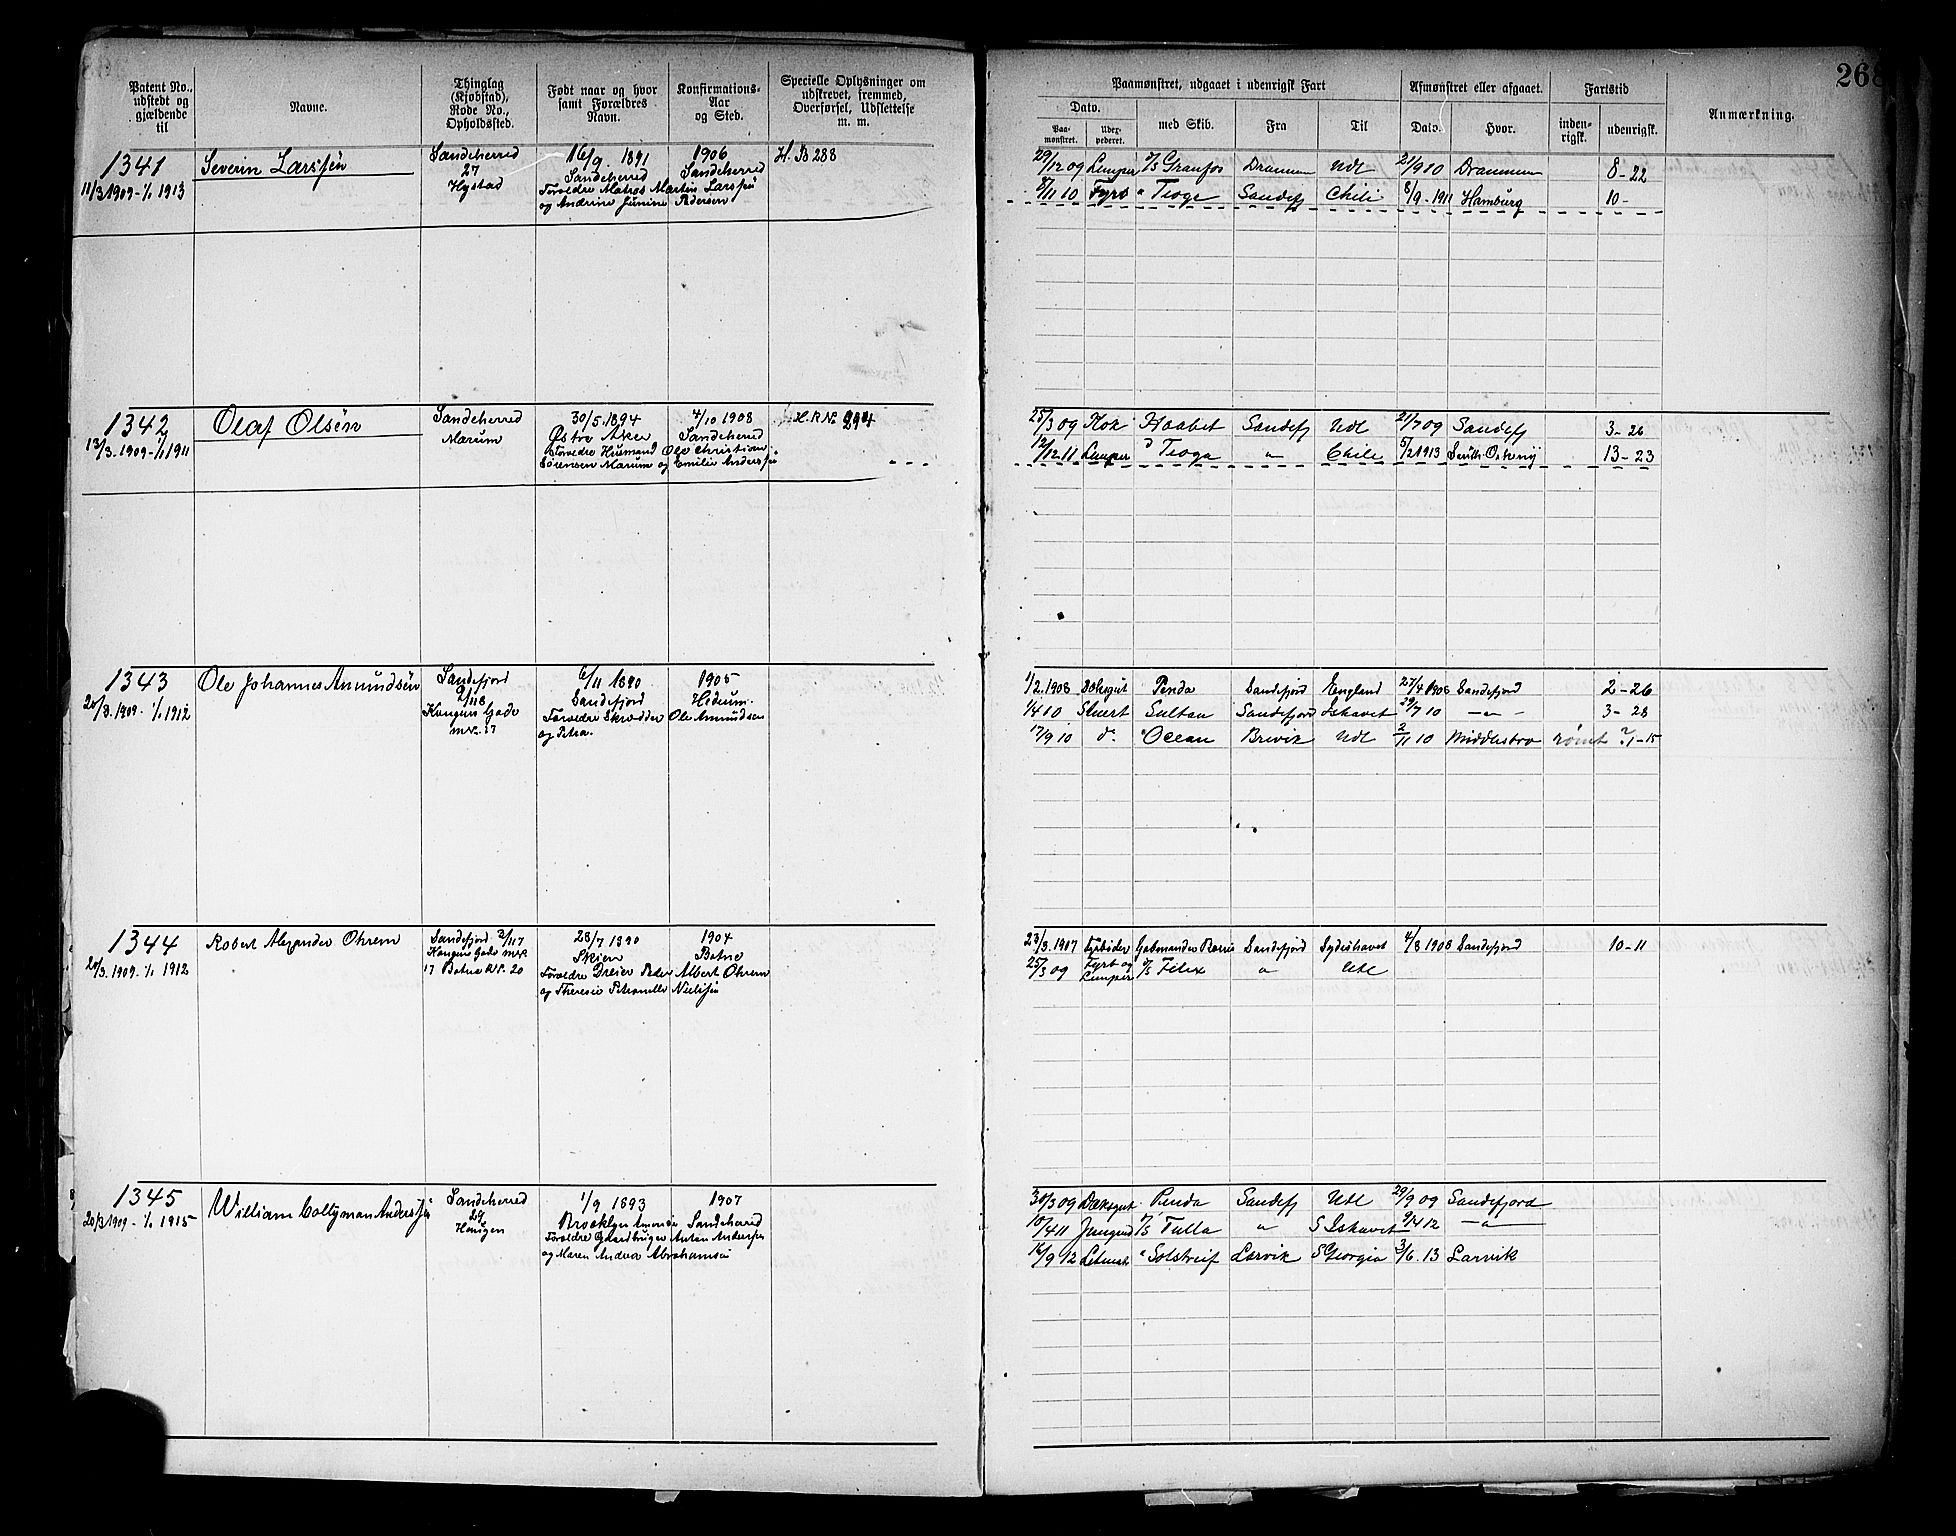 Patent No., udstedt og gjældende til
Navne.
Thinglag (Kjøbstad), Rode No., Opholdssted.
Født naar og hvor samt Forældres Navn.
Konfirmations-Aar og Sted.
Specielle Oplysninger om udskrevet, fremmed, Overførsel, Udslettelse m. m.
1341
11/3 1909 - 1/1 1913
Severin Larssen
Sandeherred
27
Hystad
16/9. 1891
Sandeherred
Forældre Matros Martin Larssen
og Andrine Pedersen
1906
Sandeherred
H. B 288
1342
13/3. 1909 - 1/1 1911
Olaf Olsen
Sandeherred
Marum
30/5. 1894
Østre Aker
Forældre Husmand Ole Christian
Sørensen Marum og Emilie Anderssen
4/10 1908
Sandeherred
1343
20/3. 1909 - 1/1 1912
Ole Johannes Amundsen
Sandefjord
2/118
Kongens Gade
mk. 17
6/11 1890
Sandefjord
Forældre Skrædder Ole Amundsen
og Petra.
1905
Hedrum.
1344
20/3. 1909 - 1/1 1912
Robert Alexander Ohrem
Sandefjord 2/117
Kongens Gade mrk.
17 Botne Nr. 20
28/7 1890
Skien
Albert Ohrem
og Theresie Petronelle Nielsen
1904
Botne
1345
20/3 1909 - 1/1 1915
William Andersen
Sandeherred
Haugen
1/9 1893
Brooklyn
Forældre Gaardbruger Anton Anderssen
og Maren Andrea Abrahamsen
1907
Sandeherred
268
Paamønstret, udgaaet i udenrigsk Fart
Afmønstret eller afgaaet.
Fartstid
Anmærkning.
Dato.
Paamønstret.
Udexpederet.
med Skib.
Fra
Til
Dato.
Hvor.
indenrigsk.
udenrigsk.
29/12 09 Lemper D/S Granfos Drammen Udl 21/9 10 Drammen 8 - 22
8/11 10 Fyrb " Tioga Sandefj Chili 8/9 - 1911 Hamburg 10 -
25/3 09 Kok Haabet Sandefj Udl 21/7 09 Sandefj 3 - 26
12/12 11 Lemper D Tioga " Chile 5/2 1913 13 - 23
1/2. 1908 Penda Sandefjord England 27/4 1908 Sandefjord 2 - 26
1/4 10 Stuert Sultan Sandefjord Ishavet 29/7 10 - " - 3 - 28
17/9 10 do " Ocean Brevik Udl 2/11 10 Middlesbro rømt ? 1 - 15
23/3. 1907 Fyrbøder Sandefjord Sydishavet 4/8 1908 Sandefjord 10 - 11
25/3 09 Fyrb og Lemper D/S Felix " Udl
30/3 09 Dæksgut Penda Sandefj Udl 29/9 09 Sandefjord
10/4 11 Jungmd D/S Tulla " S Ishavet 9/4 12 - " -
16/9 12 Letmat " Solstreif Larvik S Georgia 3/6. 13 Larvik